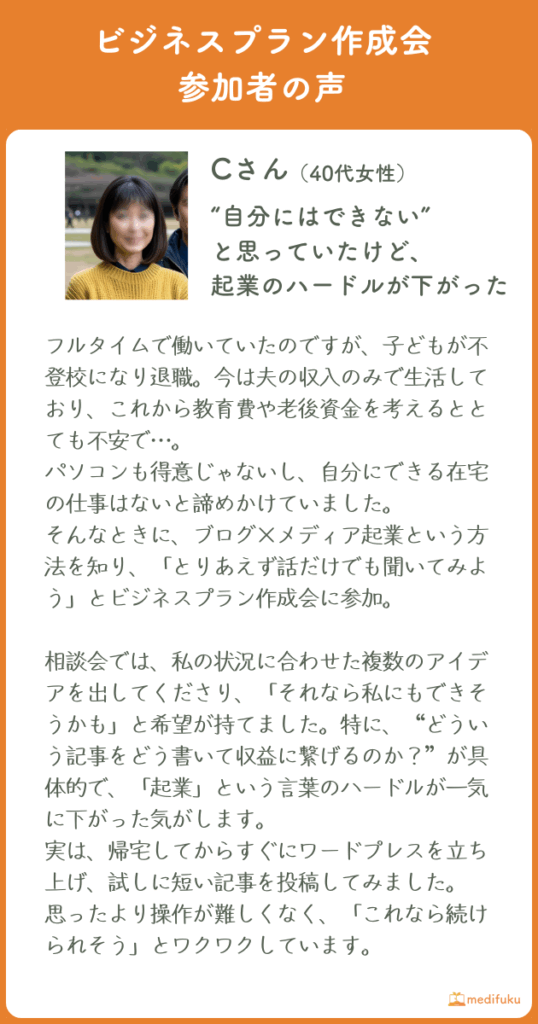 ビジネスプラン作成会
参加者の声
Cさん（40代女性）
“自分にはできない”
と思っていたけど、
起業のハードルが下がった
フルタイムで働いていたのですが、子どもが不
登校になり退職。今は夫の収入のみで生活して
おり、これから教育費や老後資金を考えるとと
ても不安で…。
パソコンも得意じゃないし、自分にできる在宅
の仕事はないと諦めかけていました。
そんなときに、ブログ×メディア起業という方
法を知り、「とりあえず話だけでも聞いてみよ
う」とビジネスプラン作成会に参加。
相談会では、私の状況に合わせた複数のアイデ
アを出してくださり、「それなら私にもできそ
うかも」と希望が持てました。特に、“どうい
う記事をどう書いて収益に繋げるのか？”が具
体的で、「起業」という言葉のハードルが一気
に下がった気がします。
実は、帰宅してからすぐにワードプレスを立ち
上げ、試しに短い記事を投稿してみました。
思ったより操作が難しくなく、「これなら続け
られそう」とワクワクしています。
medifuku